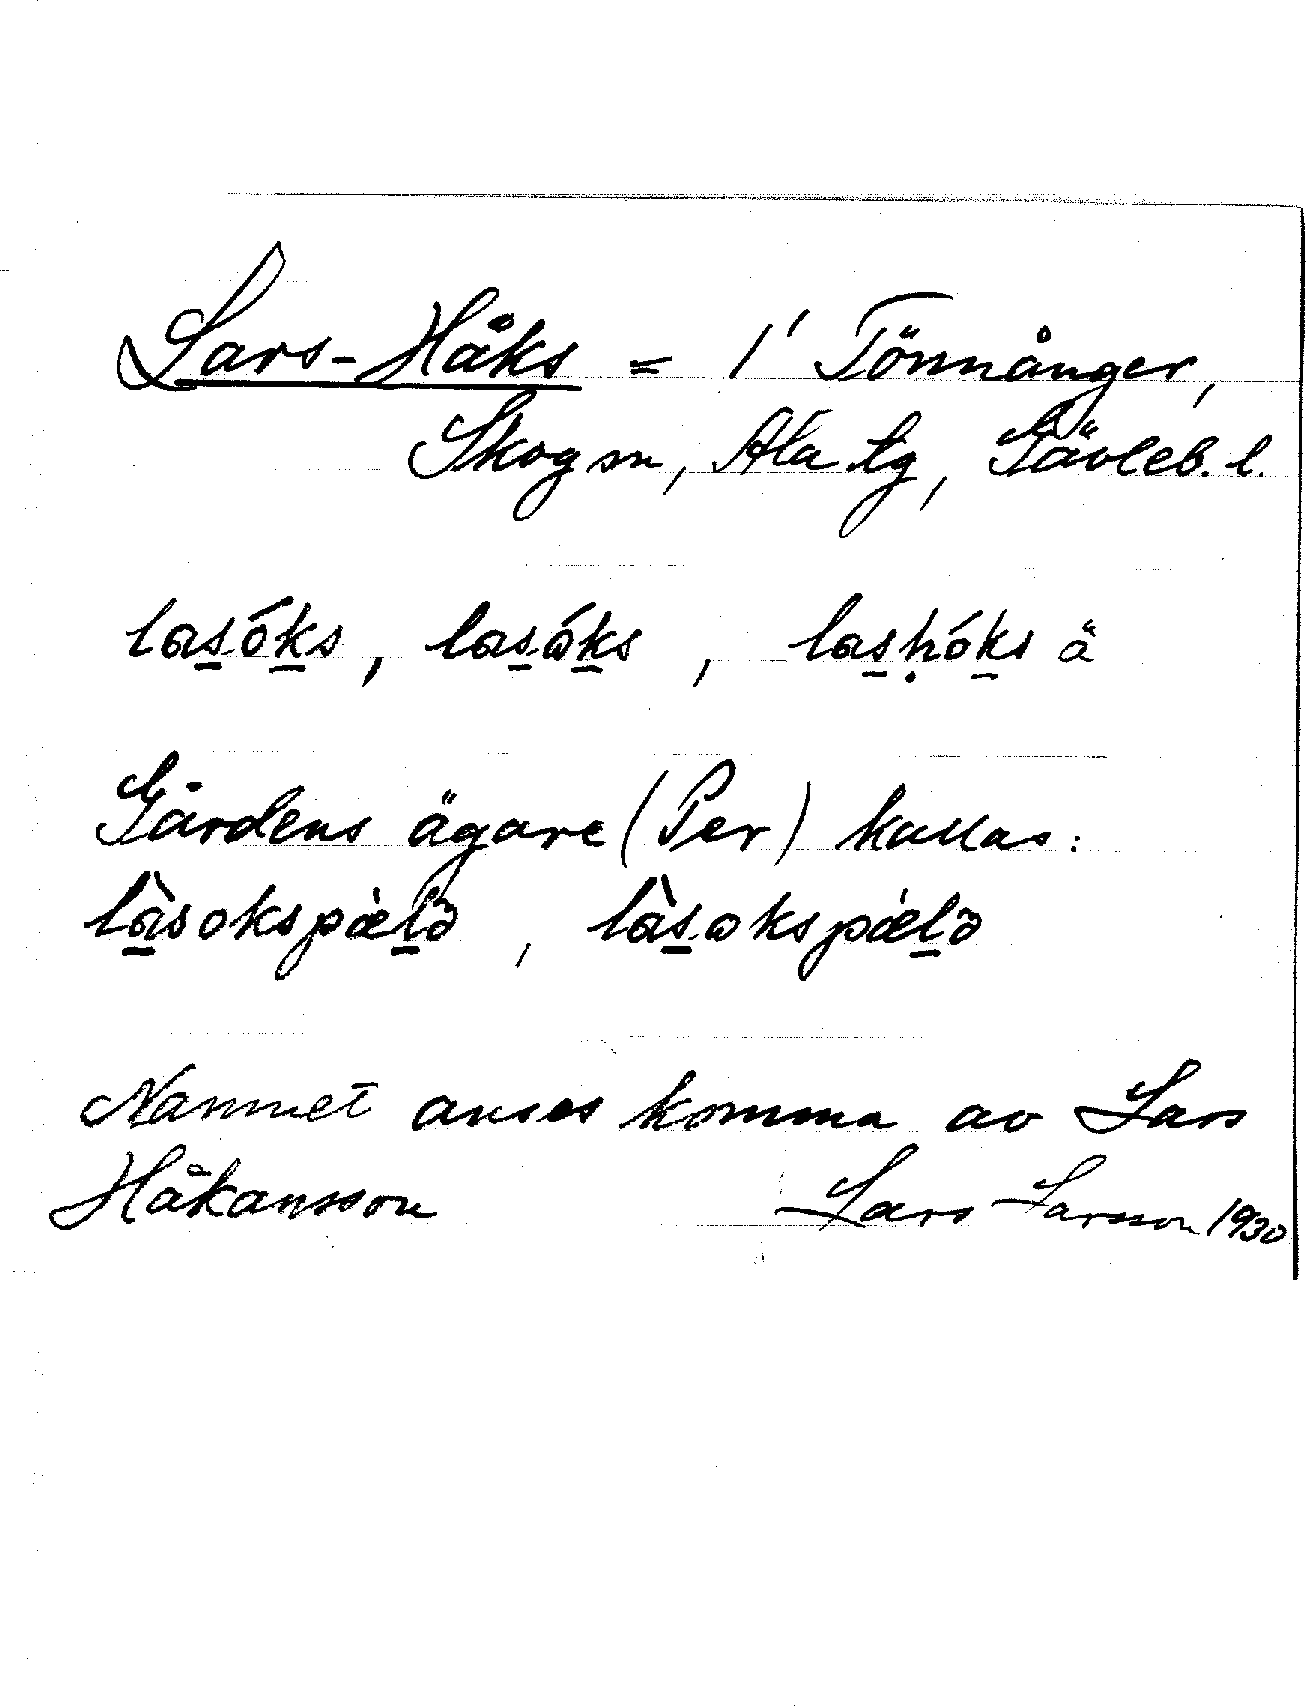 Lars-Håks = 1' Tönnånger,
Skog sn, Ala tg, Gävleb. l.
las̲ók̲s, las̲ók̲s, las̲ḥók̲s ä
Gårdens ägare (Per) kallas:
là̲sokspæl̲ə, làs̲okspæl̲ə
Namnet anses komma av Lars
Håkansson Lars Larsson 1930